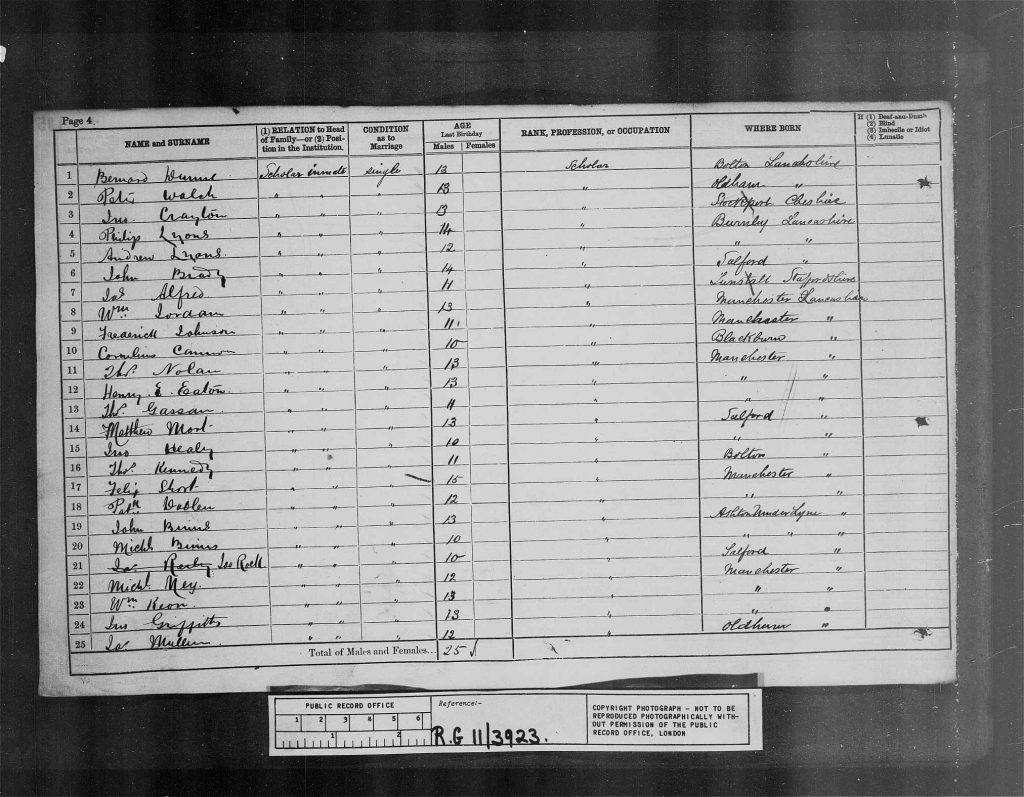 Page 4.
NAME and SURNAME
(1) RELATION to Head of Family—or (2) Position in the Institution.
CONDITION as to Marriage
AGE Last Birthday
Males Females
RANK, PROFESSION, or OCCUPATION
WHERE BORN
If (1) Deaf-and-Dumb
(2) Blind
(3) Imbecile or Idiot
(4) Lunatic
1 Bernard Scholar inmate single 13 Scholar Bolton Lancashire
2 Peter Walsh " 13 " Oldham "
3 Jno Crayton " " " 13 " Stockport Cheshire
4 Philip Lyons " " " 14 " Burnley Lancashire
5 Andrew Lyons " " " 12 " " "
6 John Brady " " " 14 " Salford "
7 Jas Alfred " " " 11 " Tunstall Staffordshire
8 Wm Jordan " " " 13 " Manchester Lancashire
9 Frederick Johnson " " " 11 " Manchester "
10 Cornelius Cannon " " " 10 " Blackburn "
11 Thos Nolan " " " 13 " Manchester "
12 Henry E. Eaton " " " 13 " " "
13 Thos Gassan " " " 11 " " "
14 Matthew Mort " " " 13 " Salford "
15 Jno Healy " " " 10 " " "
16 Thos Kennedy " " " 11 " Bolton "
17 Felix Short " " " 15 " Manchester "
18 Patk " " " 12 " " "
19 John Binns " " " 13 " Ashton Under Lyne "
20 Michl Binns " " " 10 " " " "
21 Jas Jas Rock " " " 10 " Salford "
22 Michl Ney " " " 12 " Manchester "
23 Wm Keon " " " 13 " " "
24 Jno Griffiths " " " 13 " " "
25 Jas Mullen " " " 12 " Oldham "
Total of Males and Females... 25
PUBLIC RECORD OFFICE
1 2 3 4 5 6
1 2
Reference:-
R.G 11/3923.
COPYRIGHT PHOTOGRAPH - NOT TO BE
REPRODUCED PHOTOGRAPHICALLY WITH-
OUT PERMISSION OF THE PUBLIC
RECORD OFFICE, LONDON